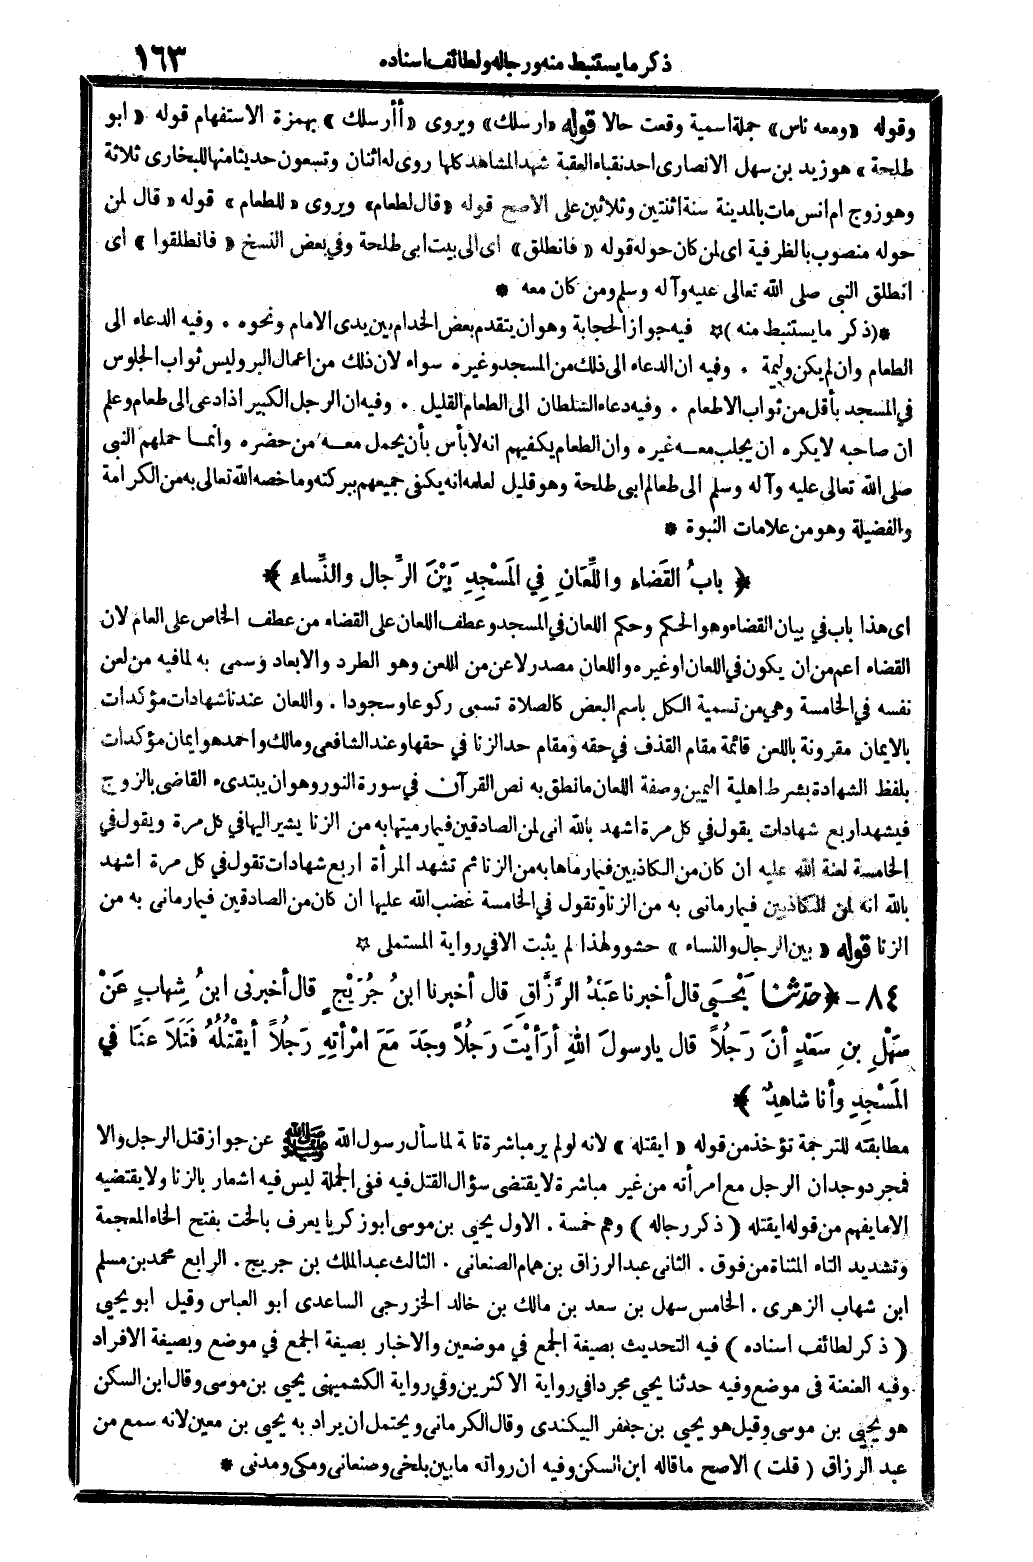 ذكر ما يستنبط منه ورجاله ولطائف اسناده ١٦٣
وقوله «ومعه ناس» جملة اسمية وقعت حالا قوله «ارسلك» ويروى «أأرسلك» بهمزة الاستفهام قوله «ابو
طلحة» هو زيد بن سهل الانصارى احد نقباء العقبة شهد المشاهد كلها روى له اثنان وتسعون حديثا منها للبخارى ثلاثة
وهو زوج ام انس مات بالمدينة سنة اثنتين وثلاثين على الاصح قوله «قال لطعام» ويروى «للطعام» قوله «قال لمن
حوله منصوب بالظرفية اى لمن كان حوله قوله «فانطلق» اى الى بيت ابى طلحة وفي بعض النسخ «فانطلقوا» اى
انطلق النبى صلى الله تعالى عليه وآله وسلم ومن كان معه *
*(ذكر ما يستنبط منه)☆ فيه جواز الحجابة وهو ان يتقدم بعض الخدام بين يدى الامام ونحوه . وفيه الدعاء الى
الطعام وان لم يكن وليمة . وفيه ان الدعاء الى ذلك من المسجد وغيره سواء لان ذلك من اعمال البر وليس ثواب الجلوس
في المسجد بأقل من ثواب الاطعام . وفيه دعاء السلطان الى الطعام القليل . وفيه ان الرجل الكبير اذا دعى الى طعام وعلم
ان صاحبه لا يكره ان يجلب معـه غيره وان الطعام يكفيهم انه لا بأس بأن يحمل معـه من حضره وانما حملهم النبى
صلى الله تعالى عليه وآله وسلم الى طعام ابى طلحة وهو قليل لعلمه انه يكفى جميعهم ببركته وما خصه الله تعالى به من الكرامة
والفضيلة وهو من علامات النبوة *
﴿ بابُ القَضَاءِ واللِّعَانِ فِي المَسْجِدِ بَيْنَ الرِّجالِ والنِّساءِ ﴾
اى هذا باب في بيان القضاء وهو الحكم وحكم اللعان في المسجد وعطف اللعان على القضاء من عطف الخاص على العام لان
القضاء اعم من ان يكون في اللعان او غيره واللعان مصدر لاعن من اللعن وهو الطرد والابعاد وسمى به لما فيه من لعن
نفسه في الخامسة وهي من تسمية الكل باسم البعض كالصلاة تسمى ركوعا وسجودا . واللعان عندنا شهادات مؤكدات
بالايمان مقرونة باللعن قائمة مقام القذف في حقه ومقام حد الزنا في حقها وعند الشافعى ومالك واحمد هو ايمان مؤكدات
بلفظ الشهادة بشرط اهلية اليمين وصفة اللعان ما نطق به نص القرآن في سورة النور وهو ان يبتدىء القاضى بالزوج
فيشهد اربع شهادات يقول في كل مرة اشهد بالله انى لمن الصادقين فيما رميتها به من الزنا يشير اليها في كل مرة ويقول في
الخامسة لعنة الله عليه ان كان من الكاذبين فيما رماها به من الزنا ثم تشهد المرأة اربع شهادات تقول في كل مرة اشهد
بالله انه لمن الكاذبين فيما رمانى به من الزنا وتقول في الخامسة غضب الله عليها ان كان من الصادقين فيما رمانى به من
الزنا قوله «بين الرجال والنساء» حشو ولهذا لم يثبت الا في رواية المستملى ☆
٨٤ - ﴿ حدّثنا يَحْيَى قال أخبرنا عَبْدُ الرَّزَّاقِ قال أخبرنا ابنُ جُرَيْجٍ قال أخبرنى ابنُ شِهابٍ عَنْ
سَهْلِ بنِ سَعْدٍ أنَّ رَجُلاً قال يارسولَ اللهِ أرَأيْتَ رَجُلاً وجَدَ مَعَ امْرأتِهِ رَجُلاً أيَقْتُلُهُ فَتَلاَعَنَا في
المَسْجِدِ وأنا شاهِدٌ ﴾
مطابقته للترجمة تؤخذ من قوله «ايقتله» لانه لو لم ير مباشرة تامة لما سأل رسول الله ﷺ عن جواز قتل الرجل والا
فمجرد وجدان الرجل مع امرأته من غير مباشرة لا يقتضى سؤال القتل فيه ففى الجملة ليس فيه اشعار بالزنا ولا يقتضيه
الا ما يفهم من قوله ايقتله (ذكر رجاله) وهم خمسة . الاول يحيى بن موسى ابو زكريا يعرف بالخت بفتح الخاء المعجمة
وتشديد التاء المثناة من فوق . الثانى عبد الرزاق بن همام الصنعانى . الثالث عبد الملك بن جريج . الرابع محمد بن مسلم
ابن شهاب الزهرى . الخامس سهل بن سعد بن مالك بن خالد الخزرجى الساعدى ابو العباس وقيل ابو يحيى
(ذكر لطائف اسناده) فيه التحديث بصيغة الجمع في موضعين والاخبار بصيغة الجمع في موضع وبصيغة الافراد
وفيه العنعنة فى موضع وفيه حدثنا يحيى مجردا في رواية الاكثرين وفي رواية الكشميهنى يحيى بن موسى وقال ابن السكن
هو يحيى بن موسى وقيل هو يحيى بن جعفر البيكندى وقال الكرمانى ويحتمل ان يراد به يحيى بن معين لانه سمع من
عبد الرزاق (قلت) الاصح ما قاله ابن السكن وفيه ان رواته ما بين بلخى وصنعانى ومكى ومدنى *